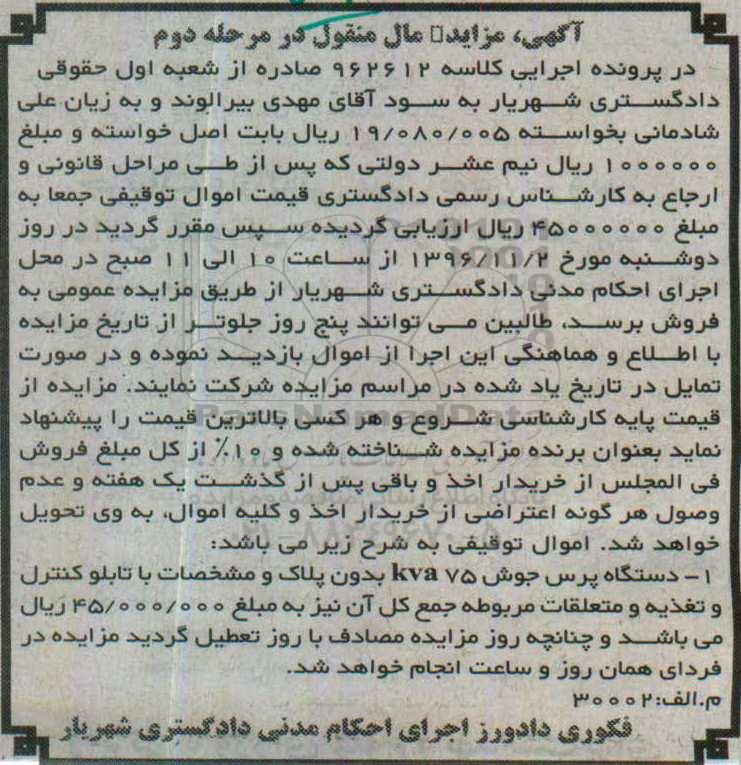 آگهی، مزایده مال منقول در مرحله دوم
در پرونده اجرایی کلاسه ۹۶۲۶۱۲ صادره از شعبه اول حقوقی
دادگستری شهریار به سود آقای مهدی بیرالوند و به زیان علی
شادمانی بخواسته ۱۹/۰۸۰/۰۰۵ ریال بابت اصل خواسته و مبلغ
۱۰۰۰۰۰۰ ریال نیم عشر دولتی که پس از طی مراحل قانونی و
ارجاع به کارشناس رسمی دادگستری قیمت اموال توقیفی جمعا به
مبلغ ۴۵۰۰۰۰۰۰ ریال ارزیابی گردیده سپس مقرر گردید در روز
دوشنبه مورخ ۱۳۹۶/۱۱/۲ از ساعت ۱۰ الی ۱۱ صبح در محل
اجرای احکام مدنی دادگستری شهریار از طریق مزایده عمومی به
فروش برسد، طالبین می توانند پنج روز جلوتر از تاریخ مزایده
با اطلاع و هماهنگی این اجرا از اموال بازدید نموده و در صورت
تمایل در تاریخ یاد شده در مراسم مزایده شرکت نمایند. مزایده از
قیمت پایه کارشناسی شروع و هر کسی بالاترین قیمت را پیشنهاد
ParsNamadData
نماید بعنوان برنده مزایده شناخته شده و ۱۰٪ از کل مبلغ فروش
فی المجلس از خریدار اخذ و باقی پس از گذشت یک هفته و عدم
وصول هر گونه اعتراضی از خریدار اخذ و کلیه اموال، به وی تحویل
خواهد شد. اموال توقیفی به شرح زیر می باشد:
۱- دستگاه پرس جوش ۷۵ kva بدون پلاک و مشخصات با تابلو کنترل
و تغذیه و متعلقات مربوطه جمع کل آن نیز به مبلغ ۴۵/۰۰۰/۰۰۰ ریال
می باشد و چنانچه روز مزایده مصادف با روز تعطیل گردید مزایده در
فردای همان روز و ساعت انجام خواهد شد.
م.الف:۳۰۰۰۲
فکوری دادورز اجرای احکام مدنی دادگستری شهریار